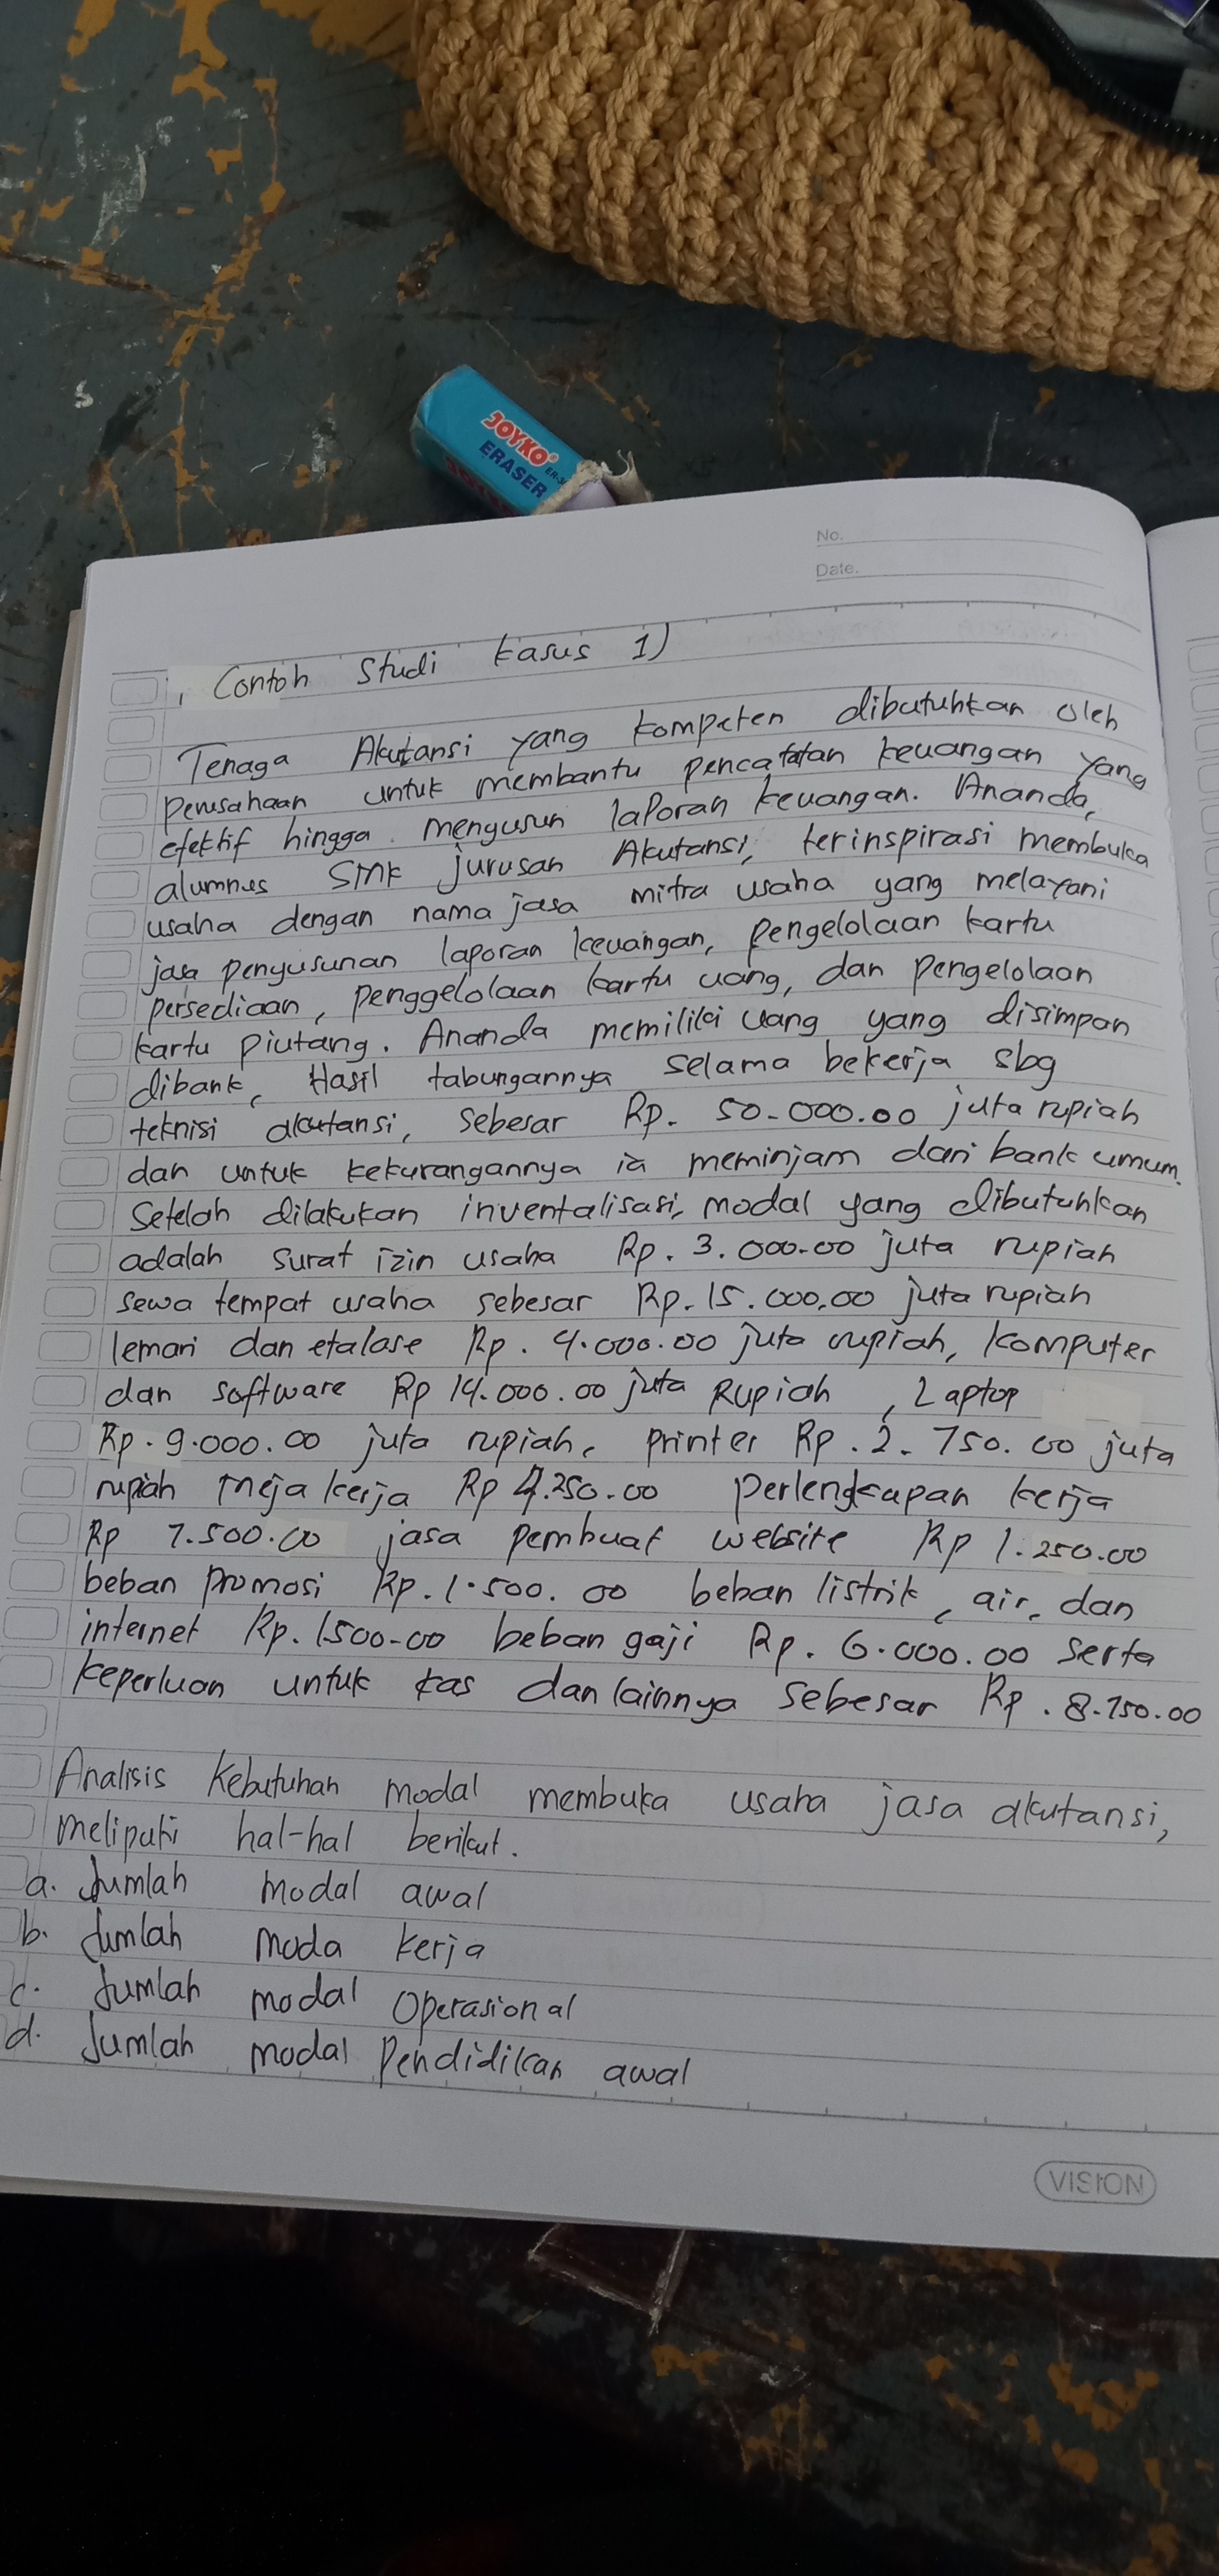 JOYKO
ERASER
No.
Date.
, Contoh Studi kasus 1)
Tenaga Akutansi yang kompeten dibutuhkan oleh
perusahaan untuk membantu pencatatan keuangan yang
efektif hingga mengusun laporan keuangan. Ananda,
alumnus SMK jurusan Akutansi, terinspirasi membuka
usaha dengan nama jasa mitra usaha yang melayani
jasa penyusunan laporan keuangan, pengelolaan kartu
persediaan, penggelolaan kartu uang, dan pengelolaan
kartu piutang. Ananda memiliki uang yang disimpan
dibank, Hasil tabungannya selama bekerja sbg
teknisi akutansi, sebesar Rp. 50-000.00 juta rupiah
dan untuk kekurangannya ia meminjam dari bank umum.
Setelah dilakukan inventalisasi, modal yang dibutuhkan
adalah surat izin usaha Rp. 3.000-00 juta rupiah
sewa tempat usaha sebesar Rp. 15.000,00 juta rupiah
lemari dan etalase Rp. 4.000.00 juta rupiah, komputer
dan software Rp 14.000.00 juta Rupiah , Laptop
Rp. 9.000.00 juta rupiah, printer Rp. 2. 750. 00 juta
rupiah meja kerja Rp 4.250.00 perlengkapan kerja
Rp 7.500.00 jasa pembuat website Rp 1.250.00
beban promosi Rp. 1.500. 00 beban listrik, air, dan
internet Rp. 1.500-00 beban gaji Rp. 6.000.00 serta
keperluan untuk kas dan lainnya sebesar Rp. 8.750.00
Analisis Kebutuhan modal membuka usaha jasa akutansi,
meliputi hal-hal berikut.
a. Jumlah modal awal
b. Jumlah moda kerja
c. Jumlah modal operasional
d. Jumlah modal pendidikan awal
VISION